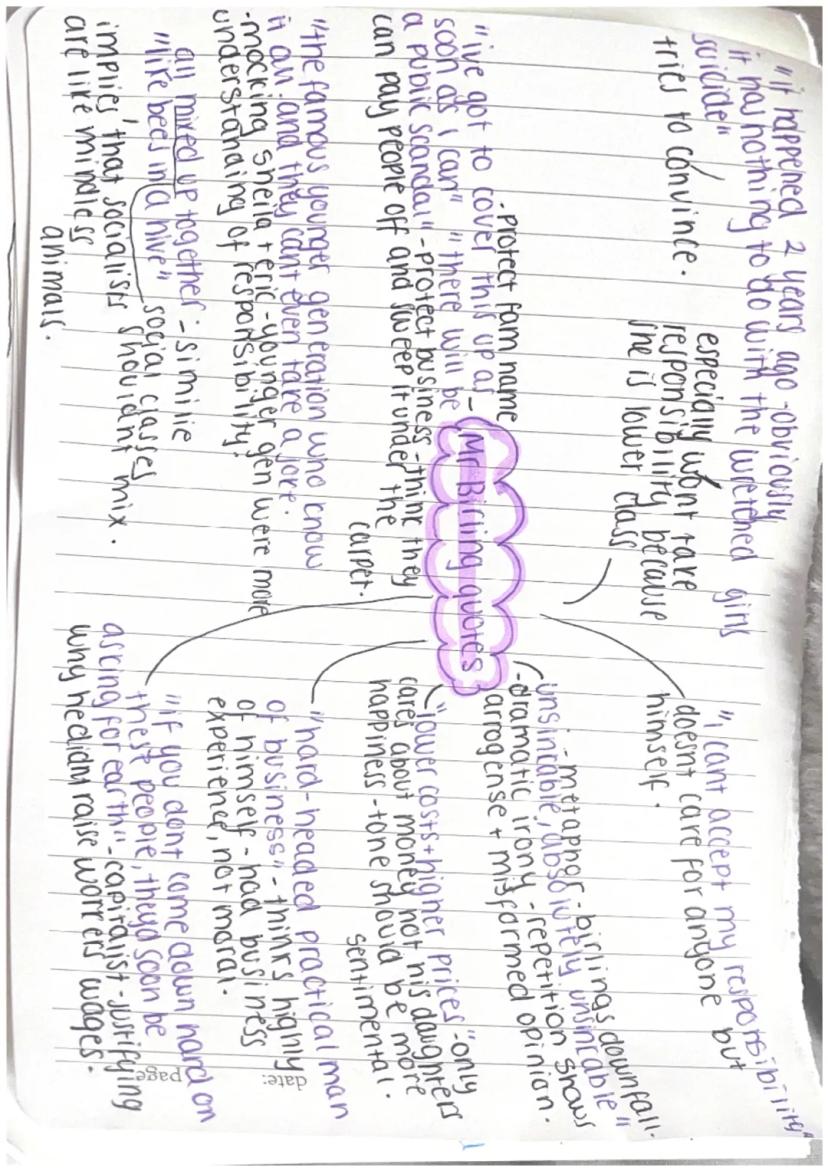 "it happened 2 years ago - obviously
it has nothing to do with the wretched girls
suicide"
tries to convince.
especially wont take
responsibility because
she is lower class
"i cant accept my responsibility"
doesnt care for anyone but
himself.
Mr Birling quotes
- protect fam name
"ive got to cover this up as
soon as i can" "there will be
a public scandal" - protect business - think they
can pay people off and sweep it under the
carpet.
"the famous younger generation who know
it all. and they cant even take a joke.
- mocking sheila + eric - younger gen were more
understanding of responsibility.
all mixed up together - similie
"like bees in a hive"
social classes
implies that socialists shouldnt mix.
are like mindless
animals.
- metapher - birlings downfall.
unsinkable, absolutely unsinkable"
- dramatic irony - repetition shows
arrogense + misformed opinian.
"lower costs + higher prices" - only
cares about money not his daughters
happiness - tone should be more
sentimental.
"hard-headed practical man
of business" - thinks highly
of himself - had business
experience, not moral.
"if you dont come down hard on
these people, theyd soon be
asking for earth" - capitalist - justifying
why he didnt raise workers wages.
date:
page